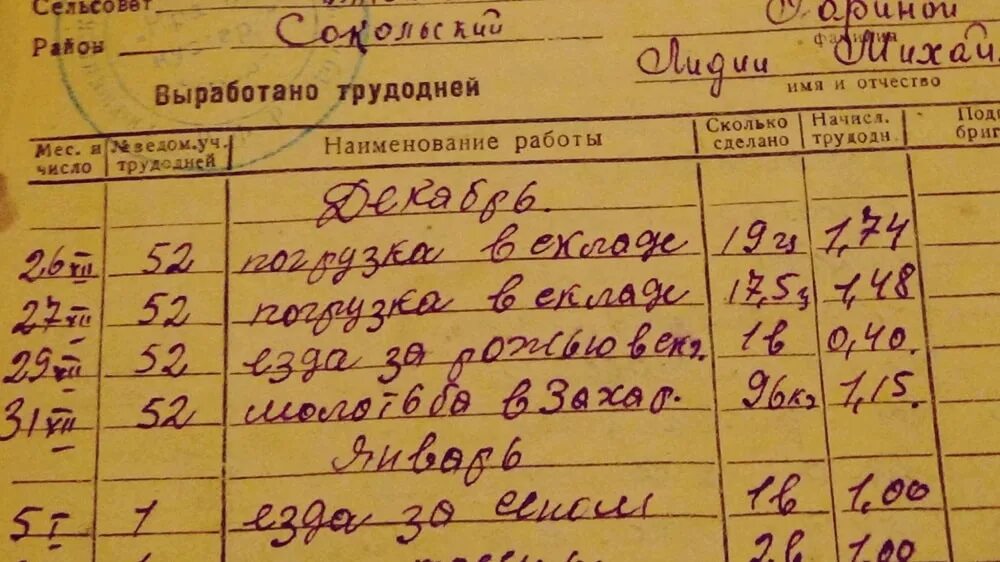 Сельсовет
Район Сокольский
фамилия
Лидии Михай
имя и отчество
Выработано трудодней
Мес. и число № ведом. уч. трудодней Наименование работы Сколько сделано Начисл. трудодн. Под бриг
Декабрь.
26 XII 52 погрузка в складе 19 ц 1,74
27 XII 52 погрузка в складе 17,5 ц 1,48
29 XII 52 езда за рожью в скл. 1 в 0,40.
31 XII 52 молотьба в Захар. 96 кг 1,15.
Январь
5 I 1 езда за сеном 1 в 1,00
2 в 1,00